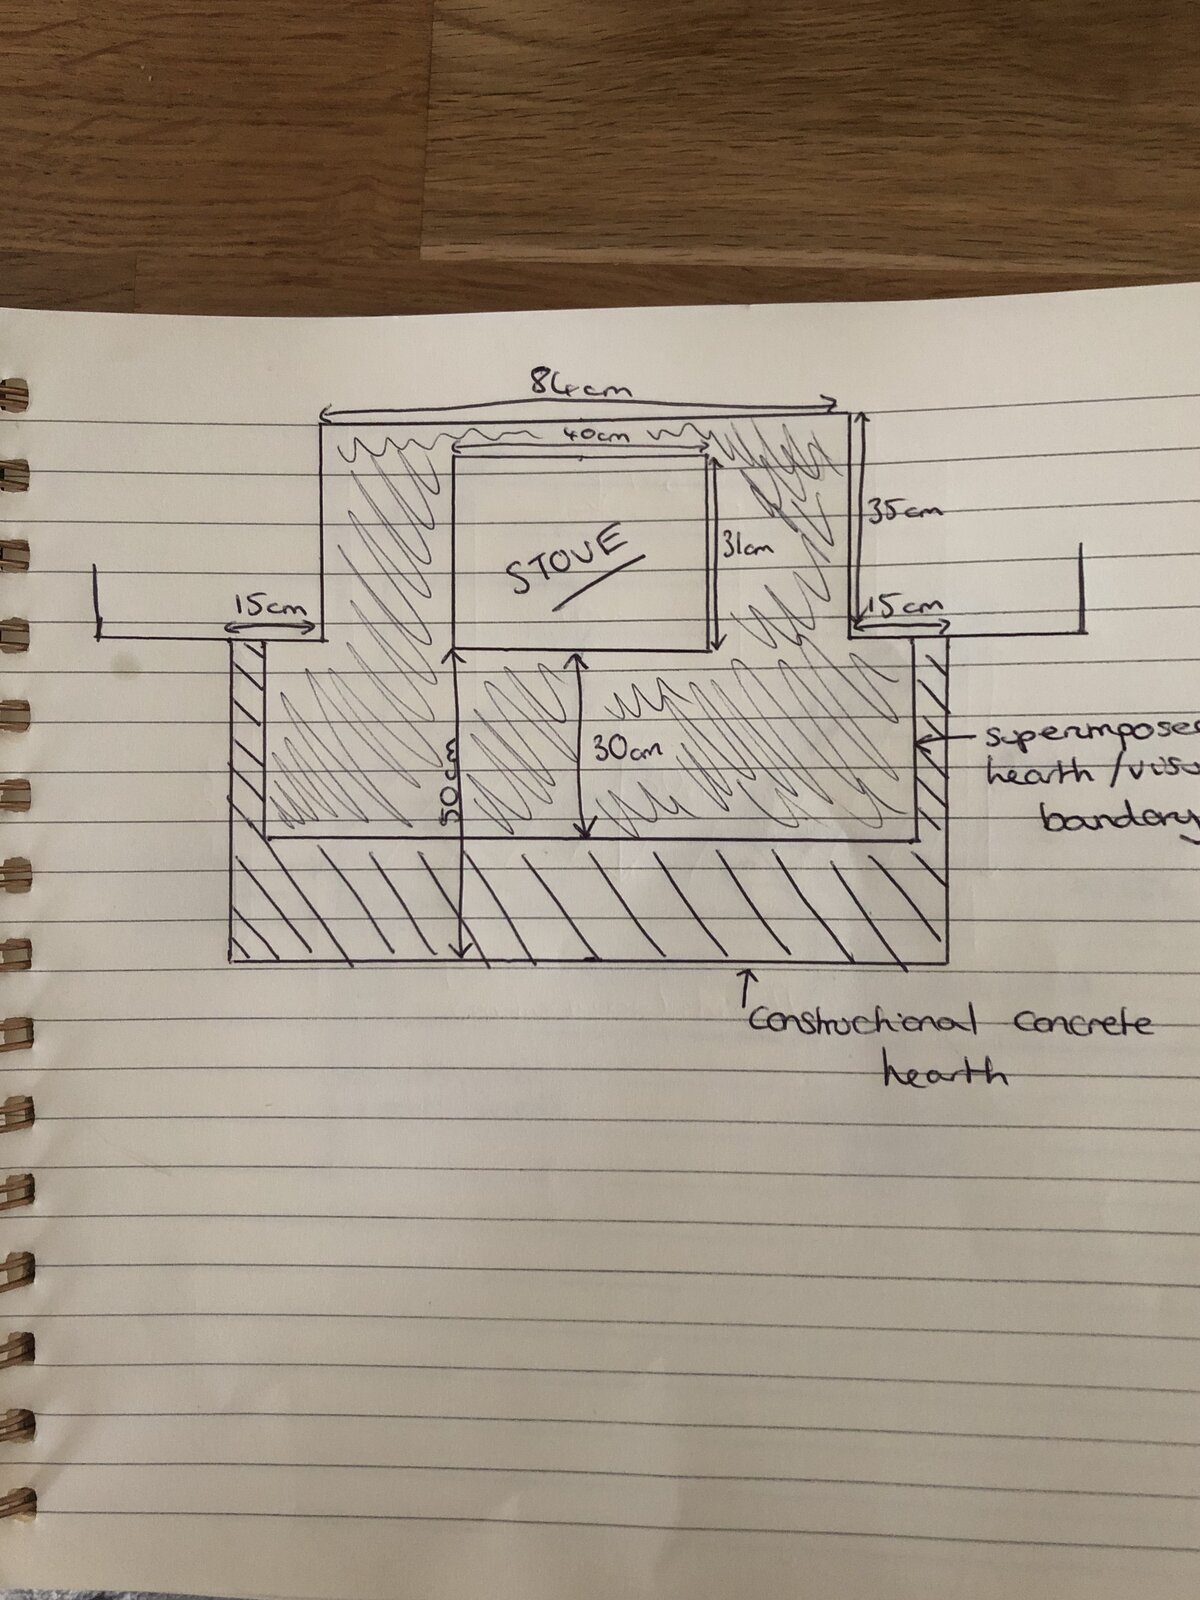 84cm
40cm
35cm
31cm
STOVE
15cm
15cm
30cm
50cm
hearth
constructional concrete
hearth